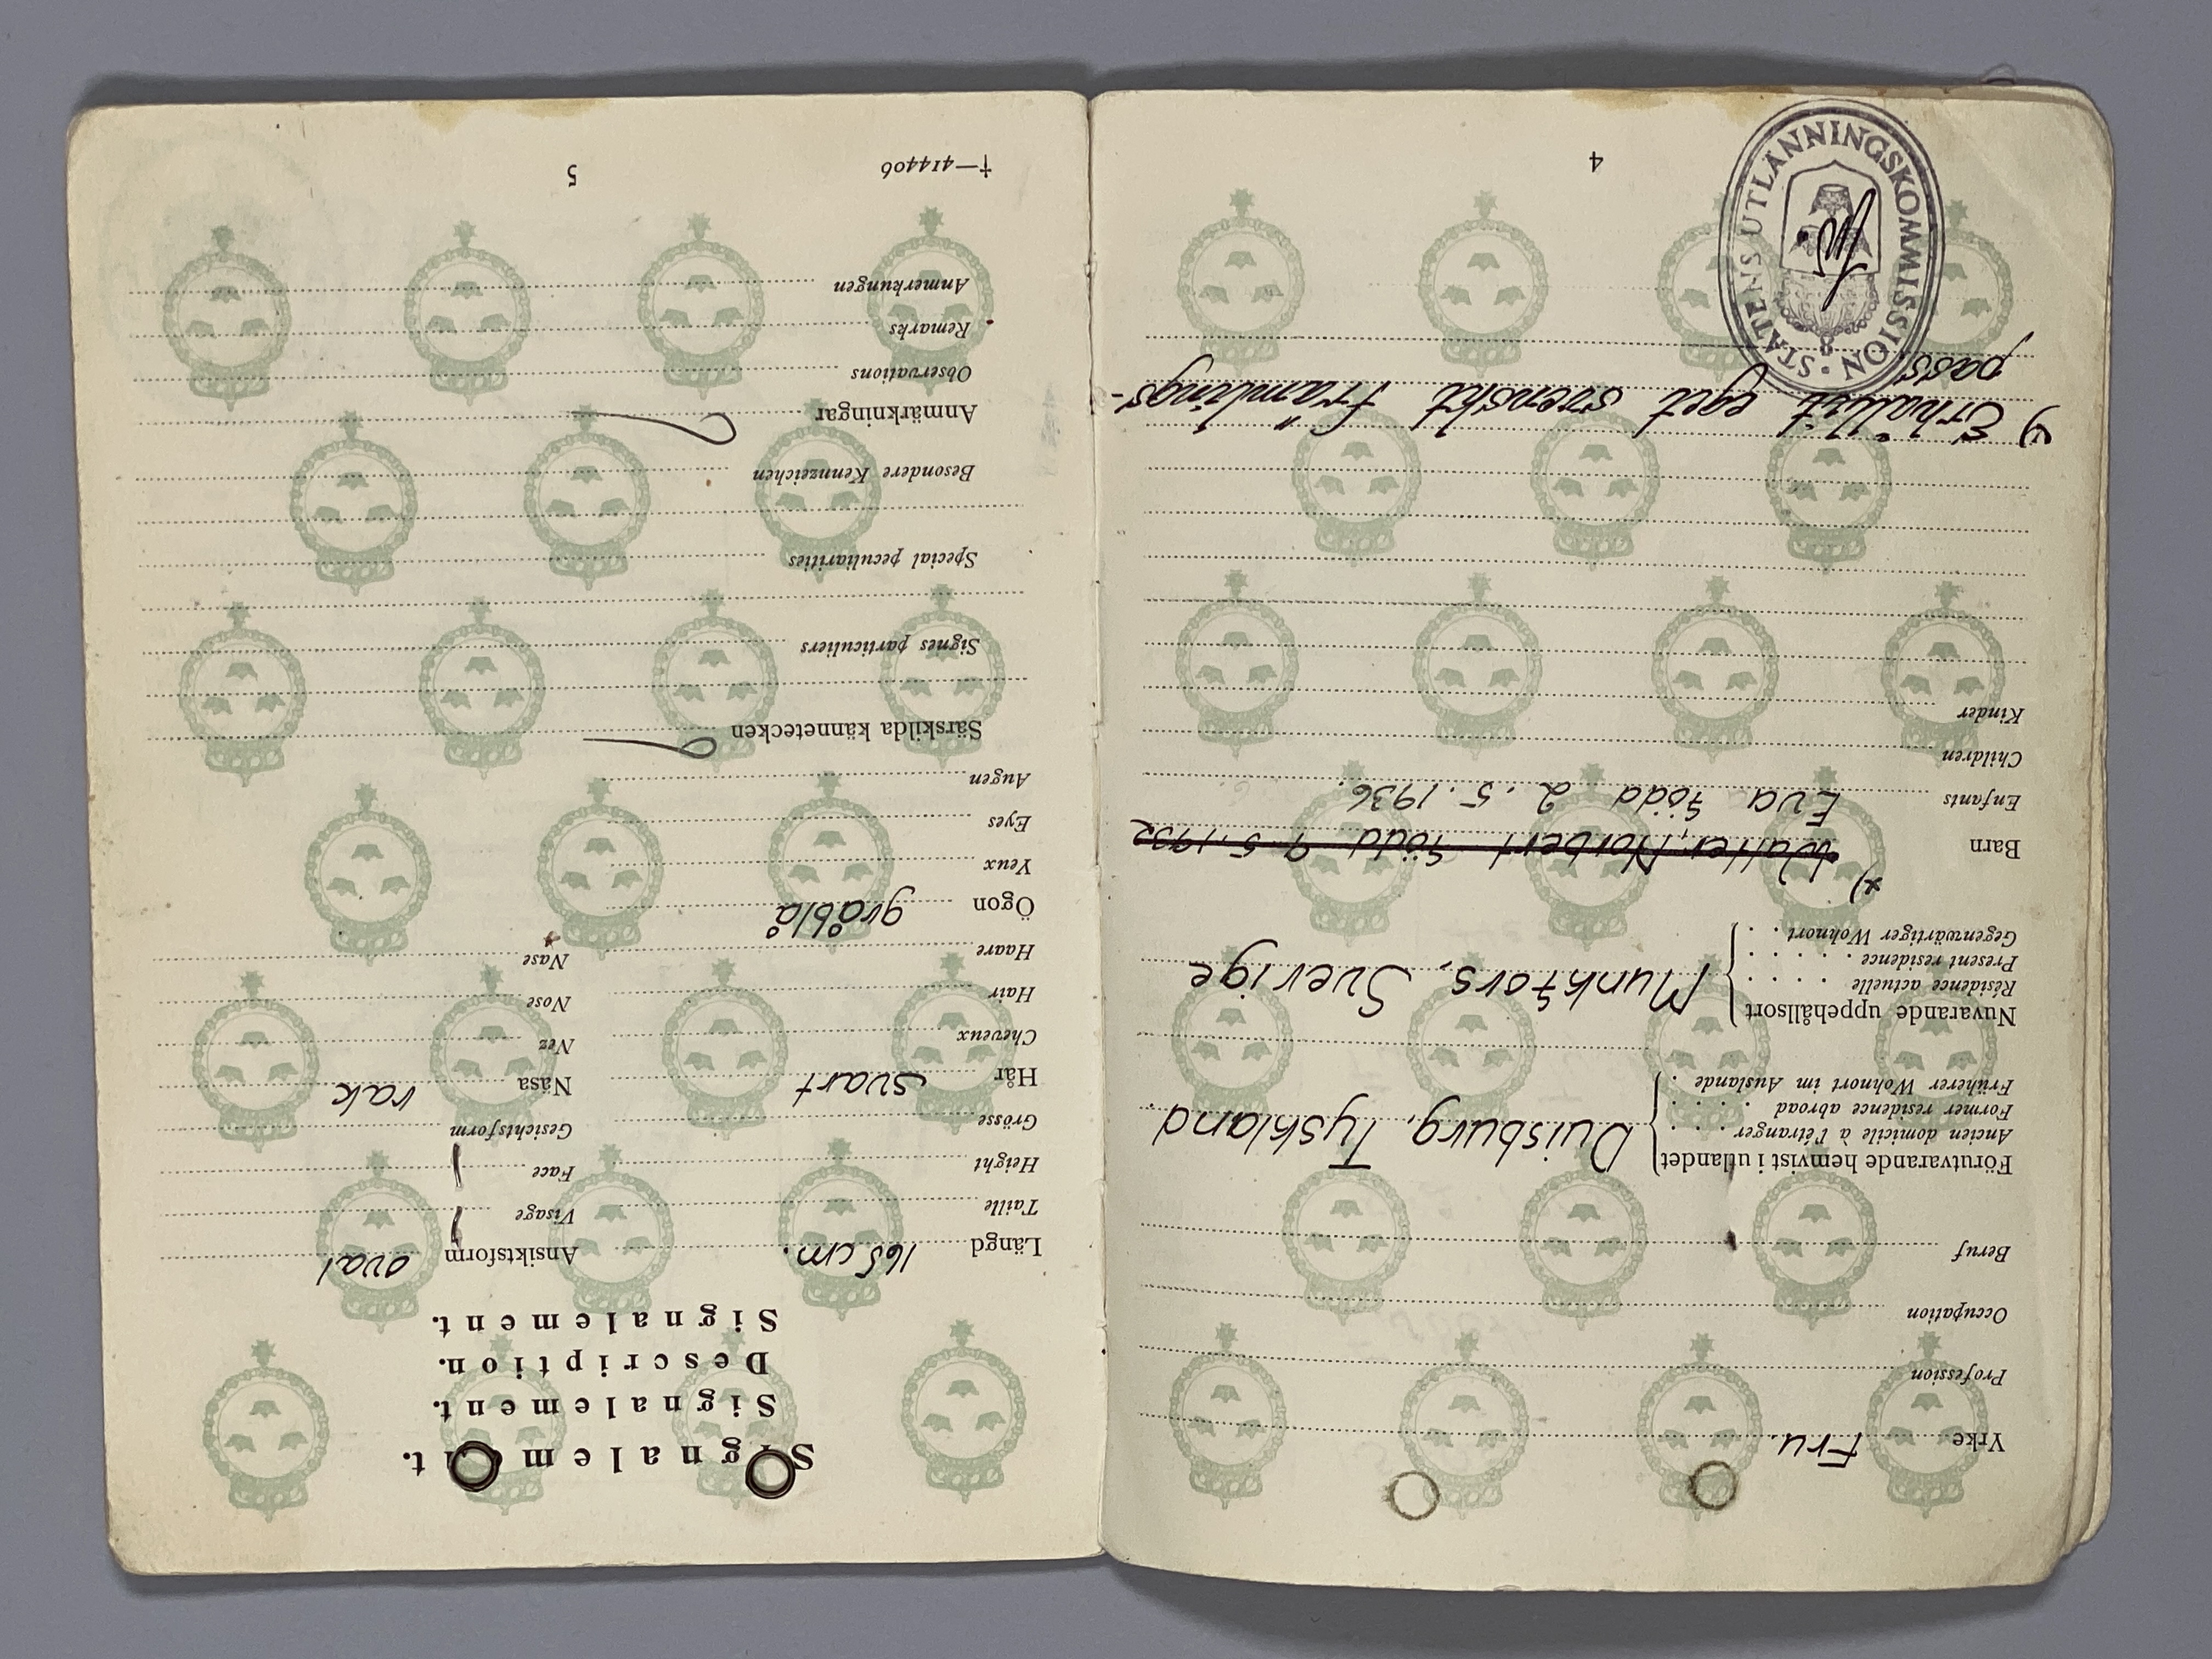 Yrke Fru.
Profession
Occupation
Beruf
Förutvarande hemvist i utlandet
Ancien domicile à l'étranger . . .
Former residence abroad . . . .
Früherer Wohnort im Auslande .
Duisburg, Tyskland.
Nuvarande uppehållsort
Résidence actuelle . . . .
Present residence . . . . .
Gegenwärtiger Wohnort . .
Munkfors, Sverige
x)
Barn Walter, Norbert född 9.5.1932
Enfants Eva född 2.5.1936.
Children
Kinder
x) Erhållit eget svenskt främlings-
pass
STATENS UTLÄNNINGSKOMMISSION
8
4
Signalement.
Signalement.
Description.
Signalement.
Längd 165 cm.
Taille
Height
Grösse
Hår svart
Cheveux
Hair
Haare
Ögon gråblå
Yeux
Eyes
Augen
Ansiktsform oval
Visage
Face
Gesichtsform
Näsa rak
Nez
Nose
Nase
Särskilda kännetecken
Signes particuliers
Special peculiarities
Besondere Kennzeichen
Anmärkningar
Observations
Remarks
Anmerkungen
†—414406
5